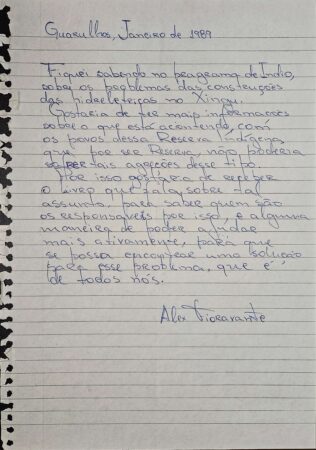 Guarulhos, Janeiro de 1989
Fiquei sabendo no programa de Indio,
sobre os problemas das construções
das hidrelétricas no Xingu.
Gostaria de ter mais informações
sobre o que está acontendo, com
os povos dessa Reserva indígena,
que por ser Reserva, não poderia
sofrer tais agreções desse tipo.
Por isso gostaria de receber
o livro que fala, sobre tal
assunto, para saber quem são
os responsáveis por isso, e alguma
maneira de poder ajudar
mais ativamente, para que
se possa encontrar uma solução
para esse problema, que é
de todos nós.
Alex Fioravante